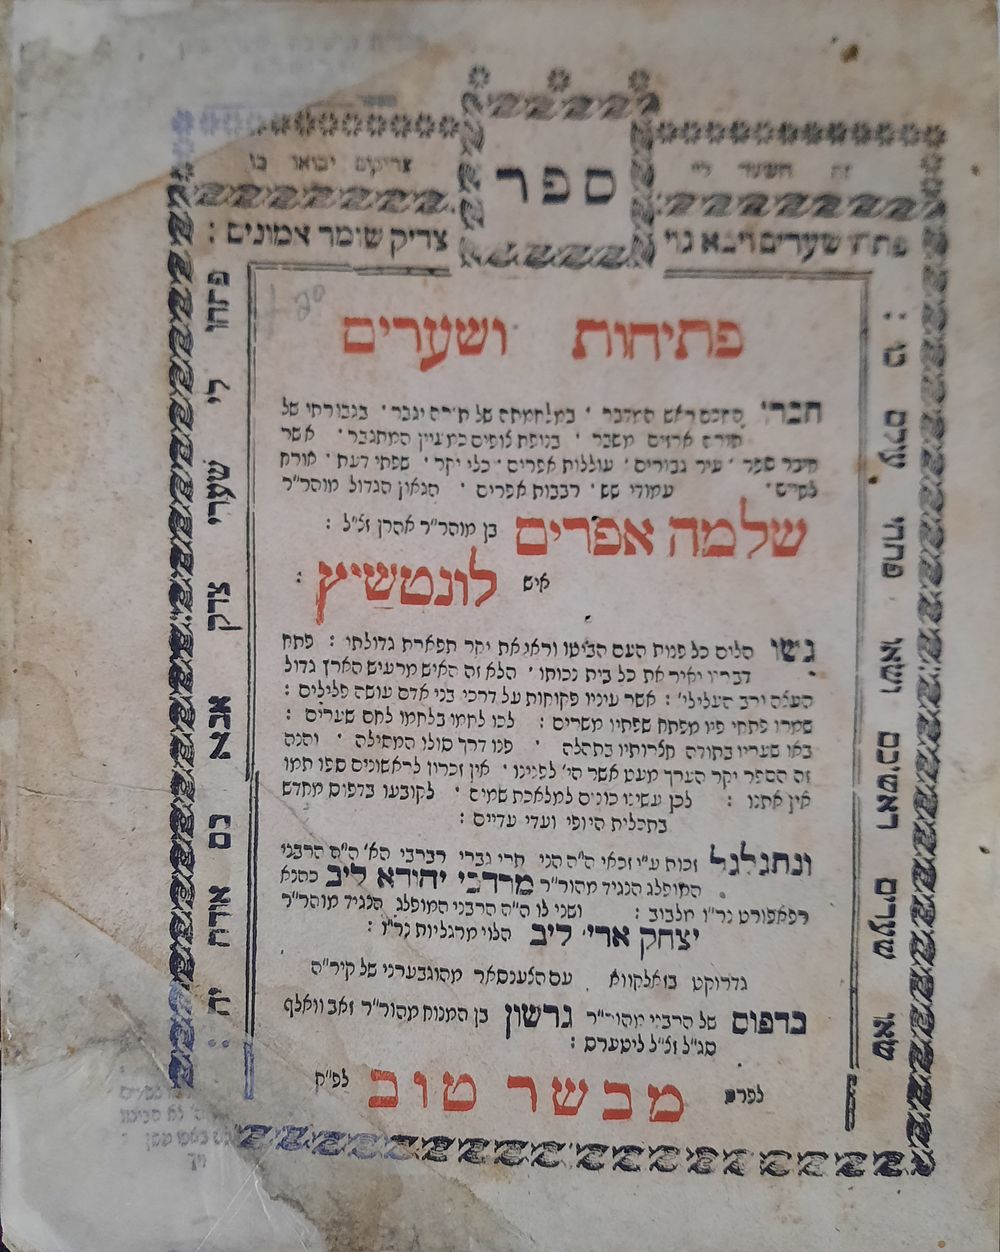 ספר
זה השער לי״י
צדיקים יבואו בו
פתחו שערים ויבא גוי
צדיק שומר אמונים :
שאו שערים ראשיכם ושאו פתחי עולם כו׳ :
פתחו לי שערי צדק אבא בם אודה יה :
פתיחות ושערים
חברו החכם ראש המדבר ׳ במלחמתה של תורה יגבר ׳ בגבורתו של
תורה ארזים משבר ׳ בנופת צופים כמעיין המתגבר ׳ אשר
חיבר ספר ׳ עיר גבורים ׳ עוללות אפרים ׳ כלי יקר ׳ שפתי דעת ׳ אורח
לחיים ׳ עמודי שש ׳ רבבות אפרים ׳ הגאון הגדול מוהר״ר
שלמה אפרים בן מוהר״ר אהרן ז״ל :
איש לונטשיץ :
גשו הלום כל פנות העם הביטו וראו את יקר תפארת גדולתו : פתח
דבריו יאיר את כל בית נכותו ׳ הלא זה האיש מרעיש הארץ גדול
העצה ורב העליליי׳ : אשר עיניו פקוחות על דרכי בני אדם עושה פלילים :
שמרו פתחי פיו מפתח שפתיו משרים : לכו לחמו בלחמו לחם שערים :
באו שעריו בתודה חצרותיו בתהלה ׳ פנו דרך סולו המסילה ׳ והנה
זה הספר יקר הערך מעט אשר הי׳ לפנינו ׳ אין זכרון לראשונים ספו תמו
אין אתנו : לכן עשינו כונים למלאכת שמים ׳ לקובעו בדפוס מחדש
בתכלית היופי ועדי עדיים :
ונתגלגל זכות ע״י זכאי ה״ה הני תרי גברי רברבי הא׳ ה״ה הרבני
המופלג הנגיד מהור״ר מרדכי יהודא ליב כהנא
רפאפורט נר״ו מלבוב : ושני לו ה״ה הרבני המופלג הנגיד מוהר״ר
יצחק ארי׳ ליב הלוי מרגליות נר״ו :
גדרוקט בזאלקווא עם הצענסאר מהוגבערני של קיר״ה
בדפוס של הרבני מהור״ר גרשון בן המנוח מהור״ר זאב וואלף
סג״ל ז״ל ליטערס :
לפרט מבשר טוב לפ״ק